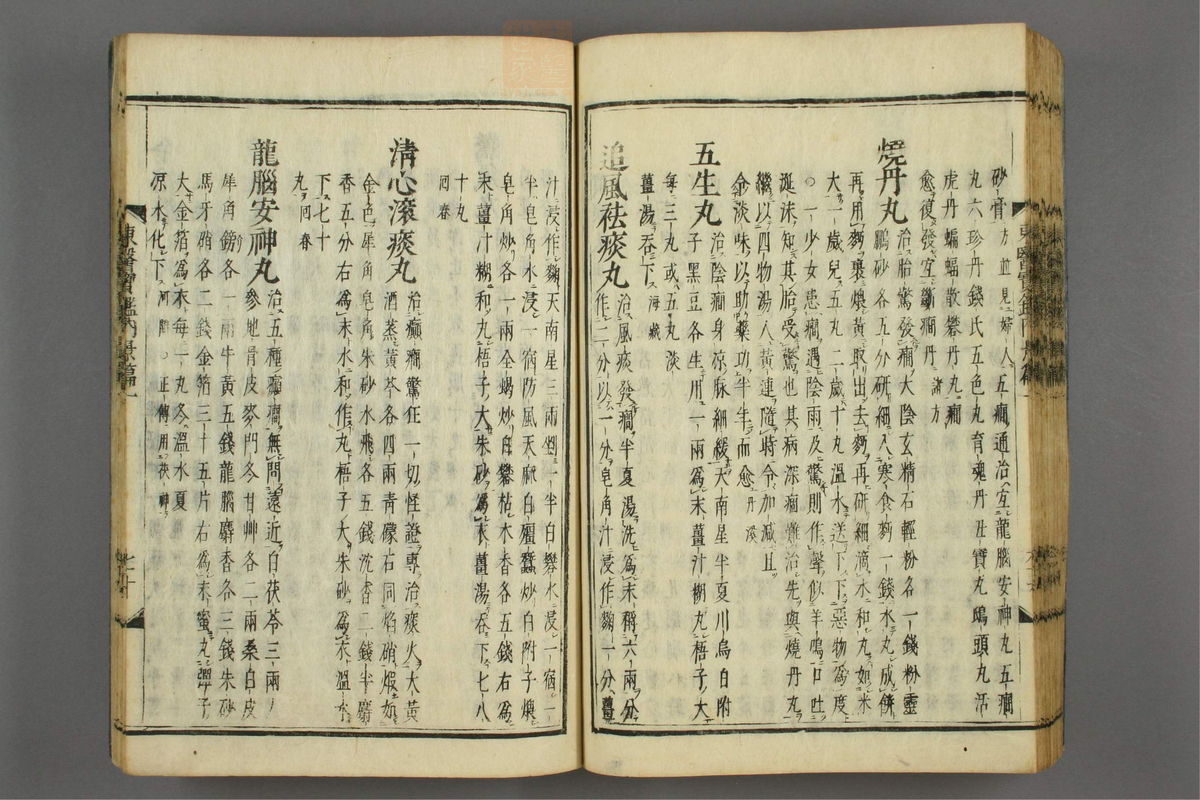 砂骨方並見婦人五癎通治宜龍腦安神丸五癎
丸六珍丹錢氏五色丸育魂丹丑寶丸鴟頭丸活
虎丹蝙蝠散礬丹丸癎
愈復發宜斷癎丹諸方
燒丹丸治胎驚發癎大陰玄精石輕粉各一錢粉靈
鵬砂各五分研細入寒食麪一錢水丸成餠
再用麪裹煨黃取出去麪再研細滴水和丸如米
大一歲兒五丸二歲十丸溫水送下下惡物爲度
○一少女患癎遇陰雨及驚則作聲似羊鳴口吐
涎沫知其胎受驚也其病深痼難治先與燒丹丸
繼以四物湯入黃連隨時令加減且
令淡味以助藥功半年而愈丹溪
五生丸治陰癎身凉脉細緩天南星半夏川烏白附
子黑豆各生用一兩爲末薑汁糊丸梧子大
每三丸或五丸淡
薑湯呑下海藏
追風祛痰丸治風痰發癎半夏湯洗爲末稱六兩分
作二分以一分皂角汁浸作麴一分薑
汁浸作麴天南星三兩剉一半白礬水浸一宿一
半皂角水浸一宿防風天麻白殭蠶炒白附子煨
皂角炒各一兩全蝎炒白礬枯木香各五錢右爲
末薑汁糊和丸梧子大朱砂爲衣薑湯呑下七八
十丸
回春
淸心滚痰丸治癲癎驚狂一切怪證專治痰火大黃
酒蒸黃芩各四兩靑礞石同焰硝煆如
金色犀角皂角朱砂水飛各五錢沈香二錢半麝
香五分右爲末水和作丸梧子大朱砂爲衣溫水
下七十
丸回春
龍腦安神丸治五種癲癎無問遠近白茯苓三兩人
參地骨皮麥門冬甘艸各二兩桑白皮
犀角鎊各一兩牛黃五錢龍腦麝香各三錢朱砂
馬牙硝各二錢金箔三十五片右爲末蜜丸彈子
大金箔爲衣每一丸冬溫水夏
凉水化下河間○正傳用茯神
東醫寶鑑內景篇